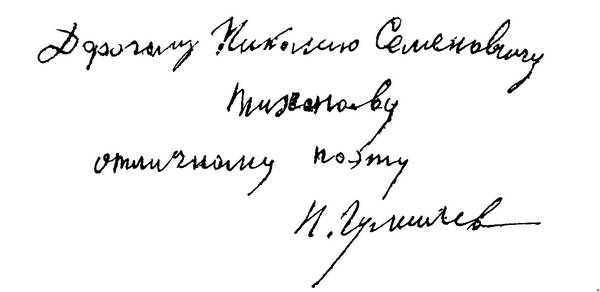 Дорогому Николаю Семеновичу
Тихонову
отличному поэту
Н. Гумилев